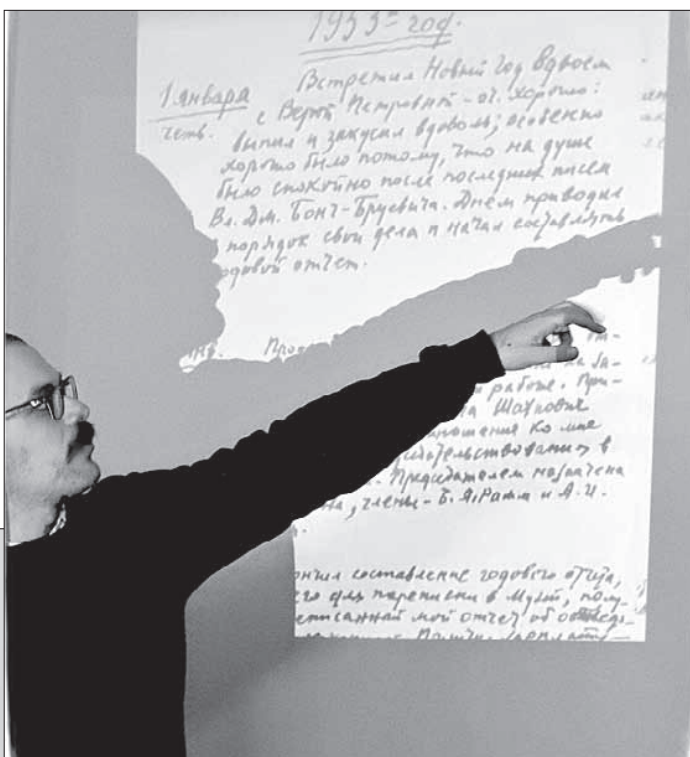 1953-й год.
1 января Встретил Новый год вдвоем
четв. с Верой Петровной - оч. хорошо:
выпил и закусил вдоволь; особенно
хорошо было потому, что на душе
было спокойно после последних писем
Вл. Дм. Бонч-Бруевича. Днем приводил
порядок свои дела и начал составлять
одовой отчет.
работе. При-
на Шахнович
ношение ко мне
в
Председателем назначена
на, члены - Б. Я. Рамм и А. И.
ончил составление годового отчета,
его для переписки в Музей, полу-
еписанный мой отчет об